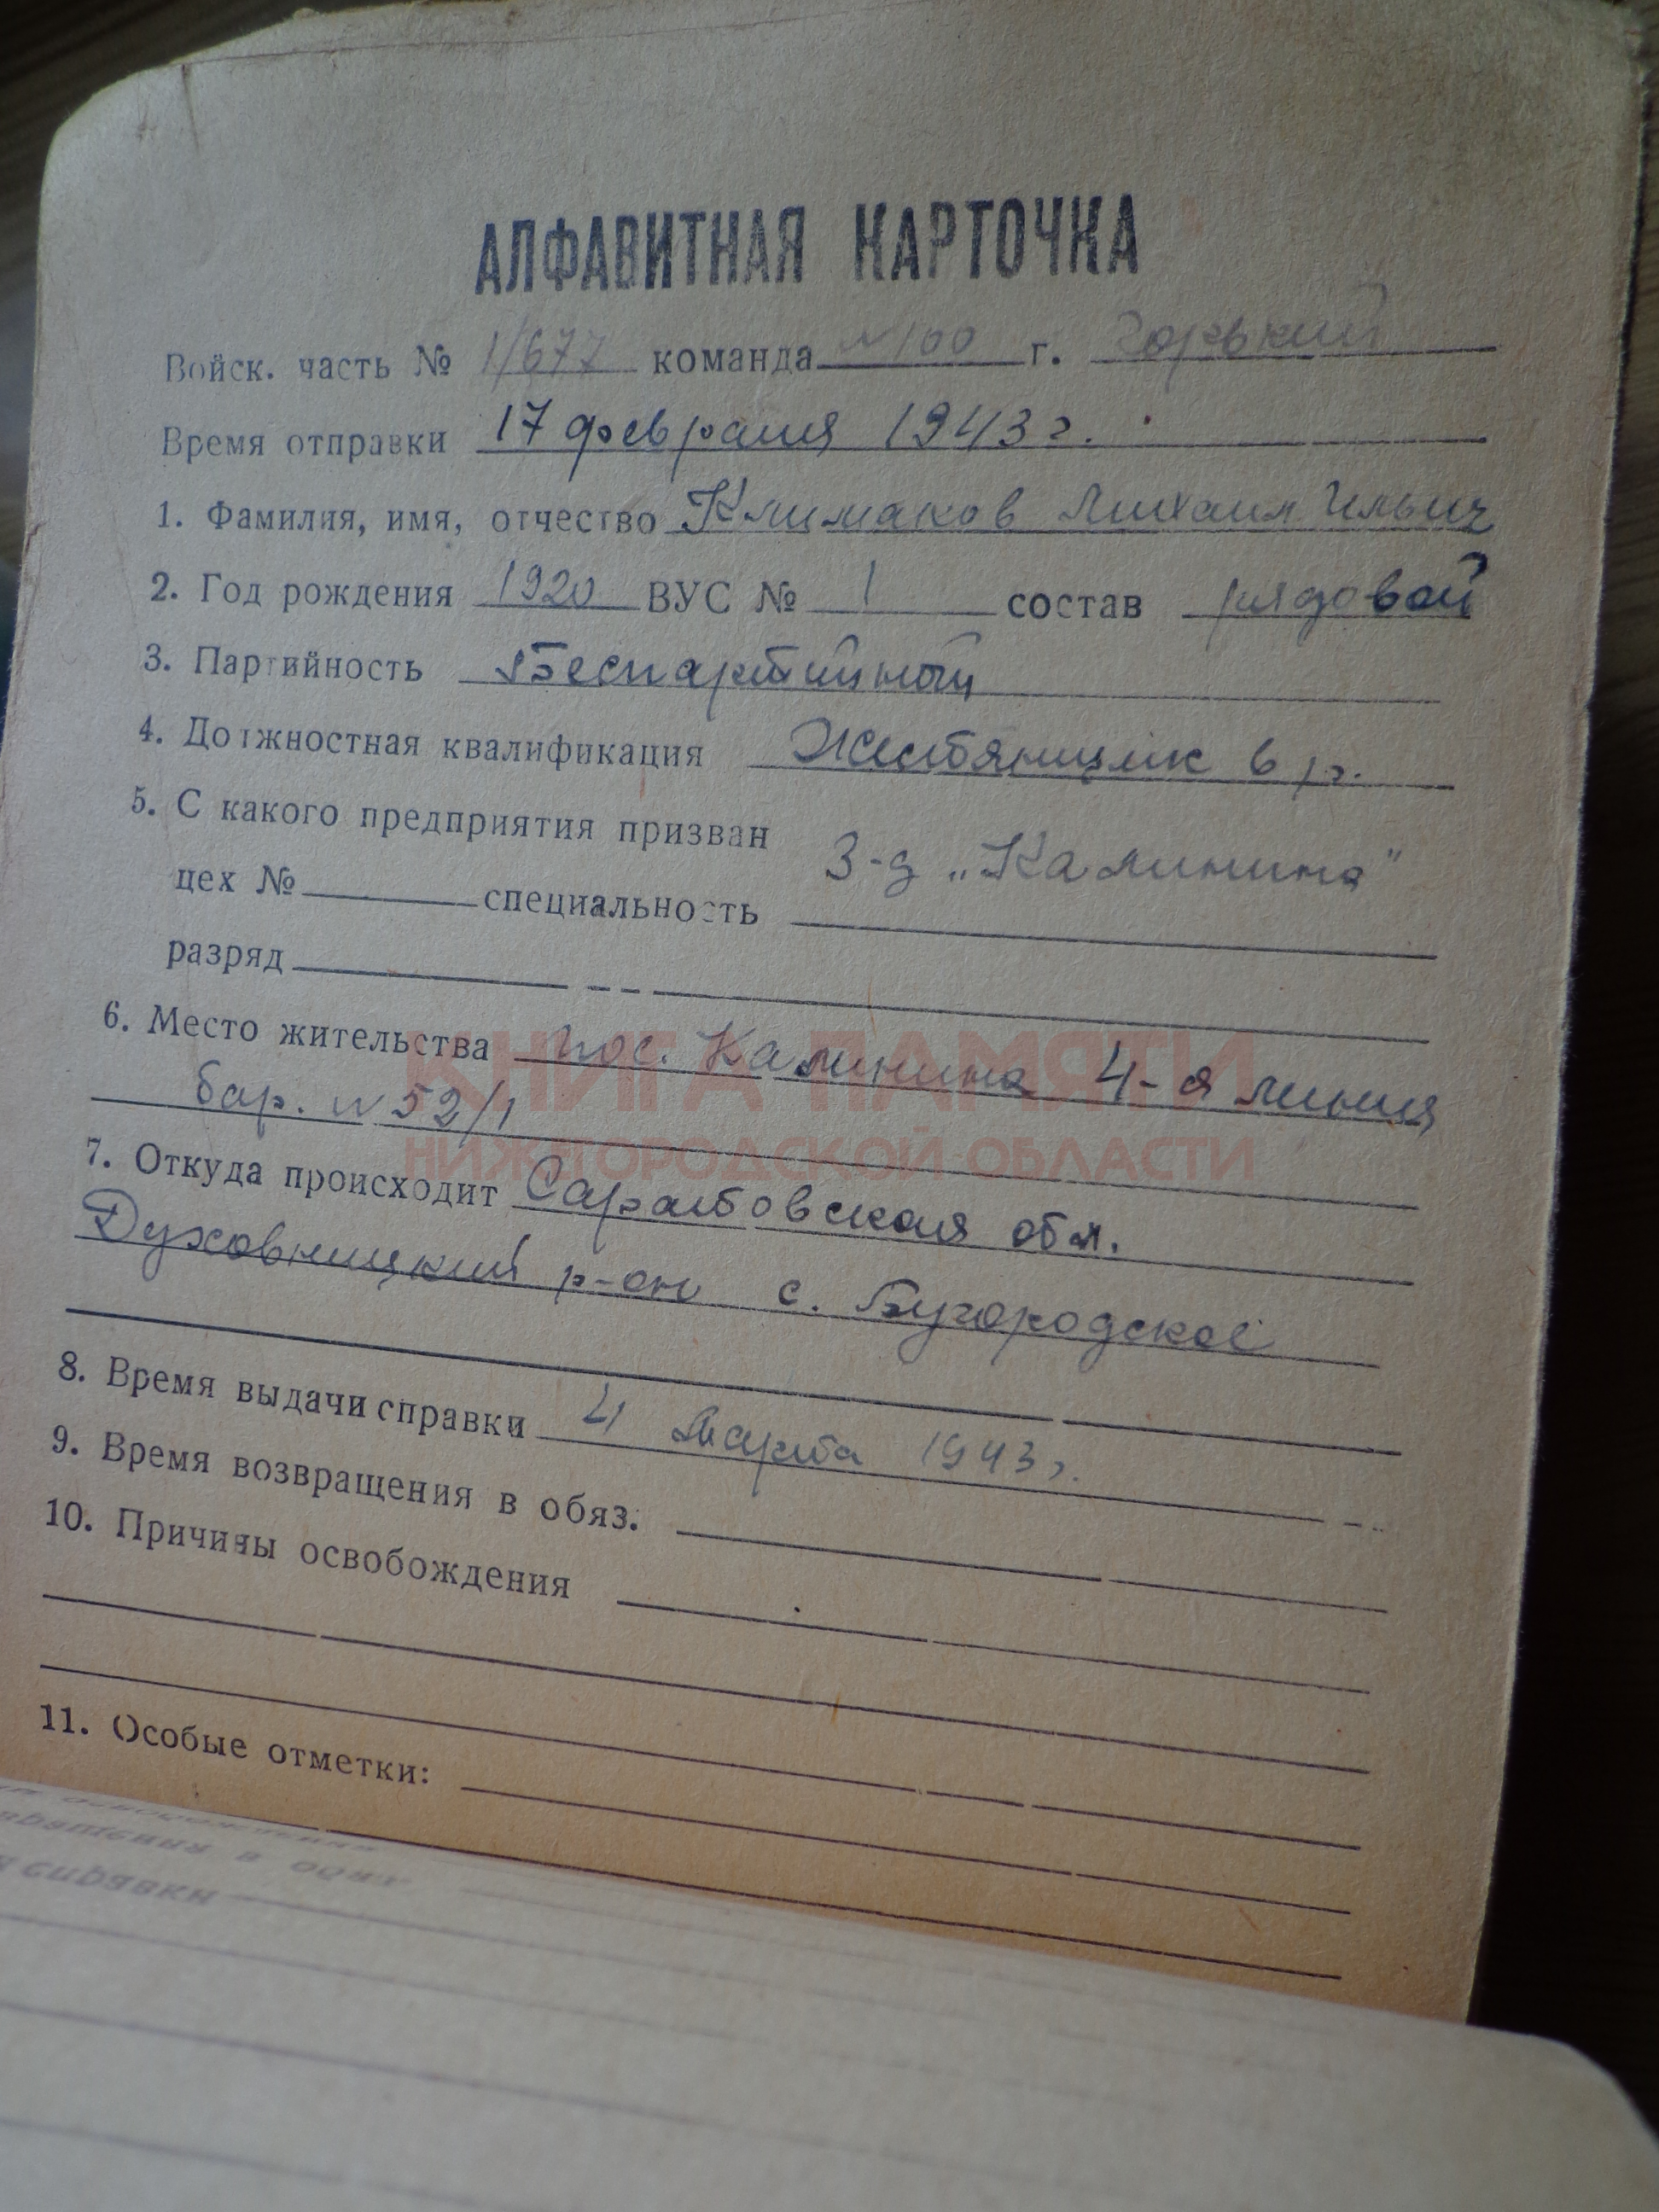 АЛФАВИТНАЯ КАРТОЧКА
Войск. часть № 1/677 команда №100 г. Горький
Время отправки 17 февраля 1943 г.
1. Фамилия, имя, отчество Климаков Михаил Ильич
2. Год рождения 1920 ВУС № 1 состав рядовой
3. Партийность Беспартийный
4. Должностная квалификация Жестянщик 6 р.
5. С какого предприятия призван
З-д „Калинина"
цех № специальность
разряд
6. Место жительства пос. Калинина 4-я линия
бар. №52/1
КНИГА ПАМЯТИ
НИЖЕГОРОДСКОЙ ОБЛАСТИ
7. Откуда происходит Саратовская обл.
Духовницкий р-он с. Бугородское
8. Время выдачи справки 4 Марта 1943 г.
9. Время возвращения в обяз.
10. Причины освобождения
11. Особые отметки:
справки